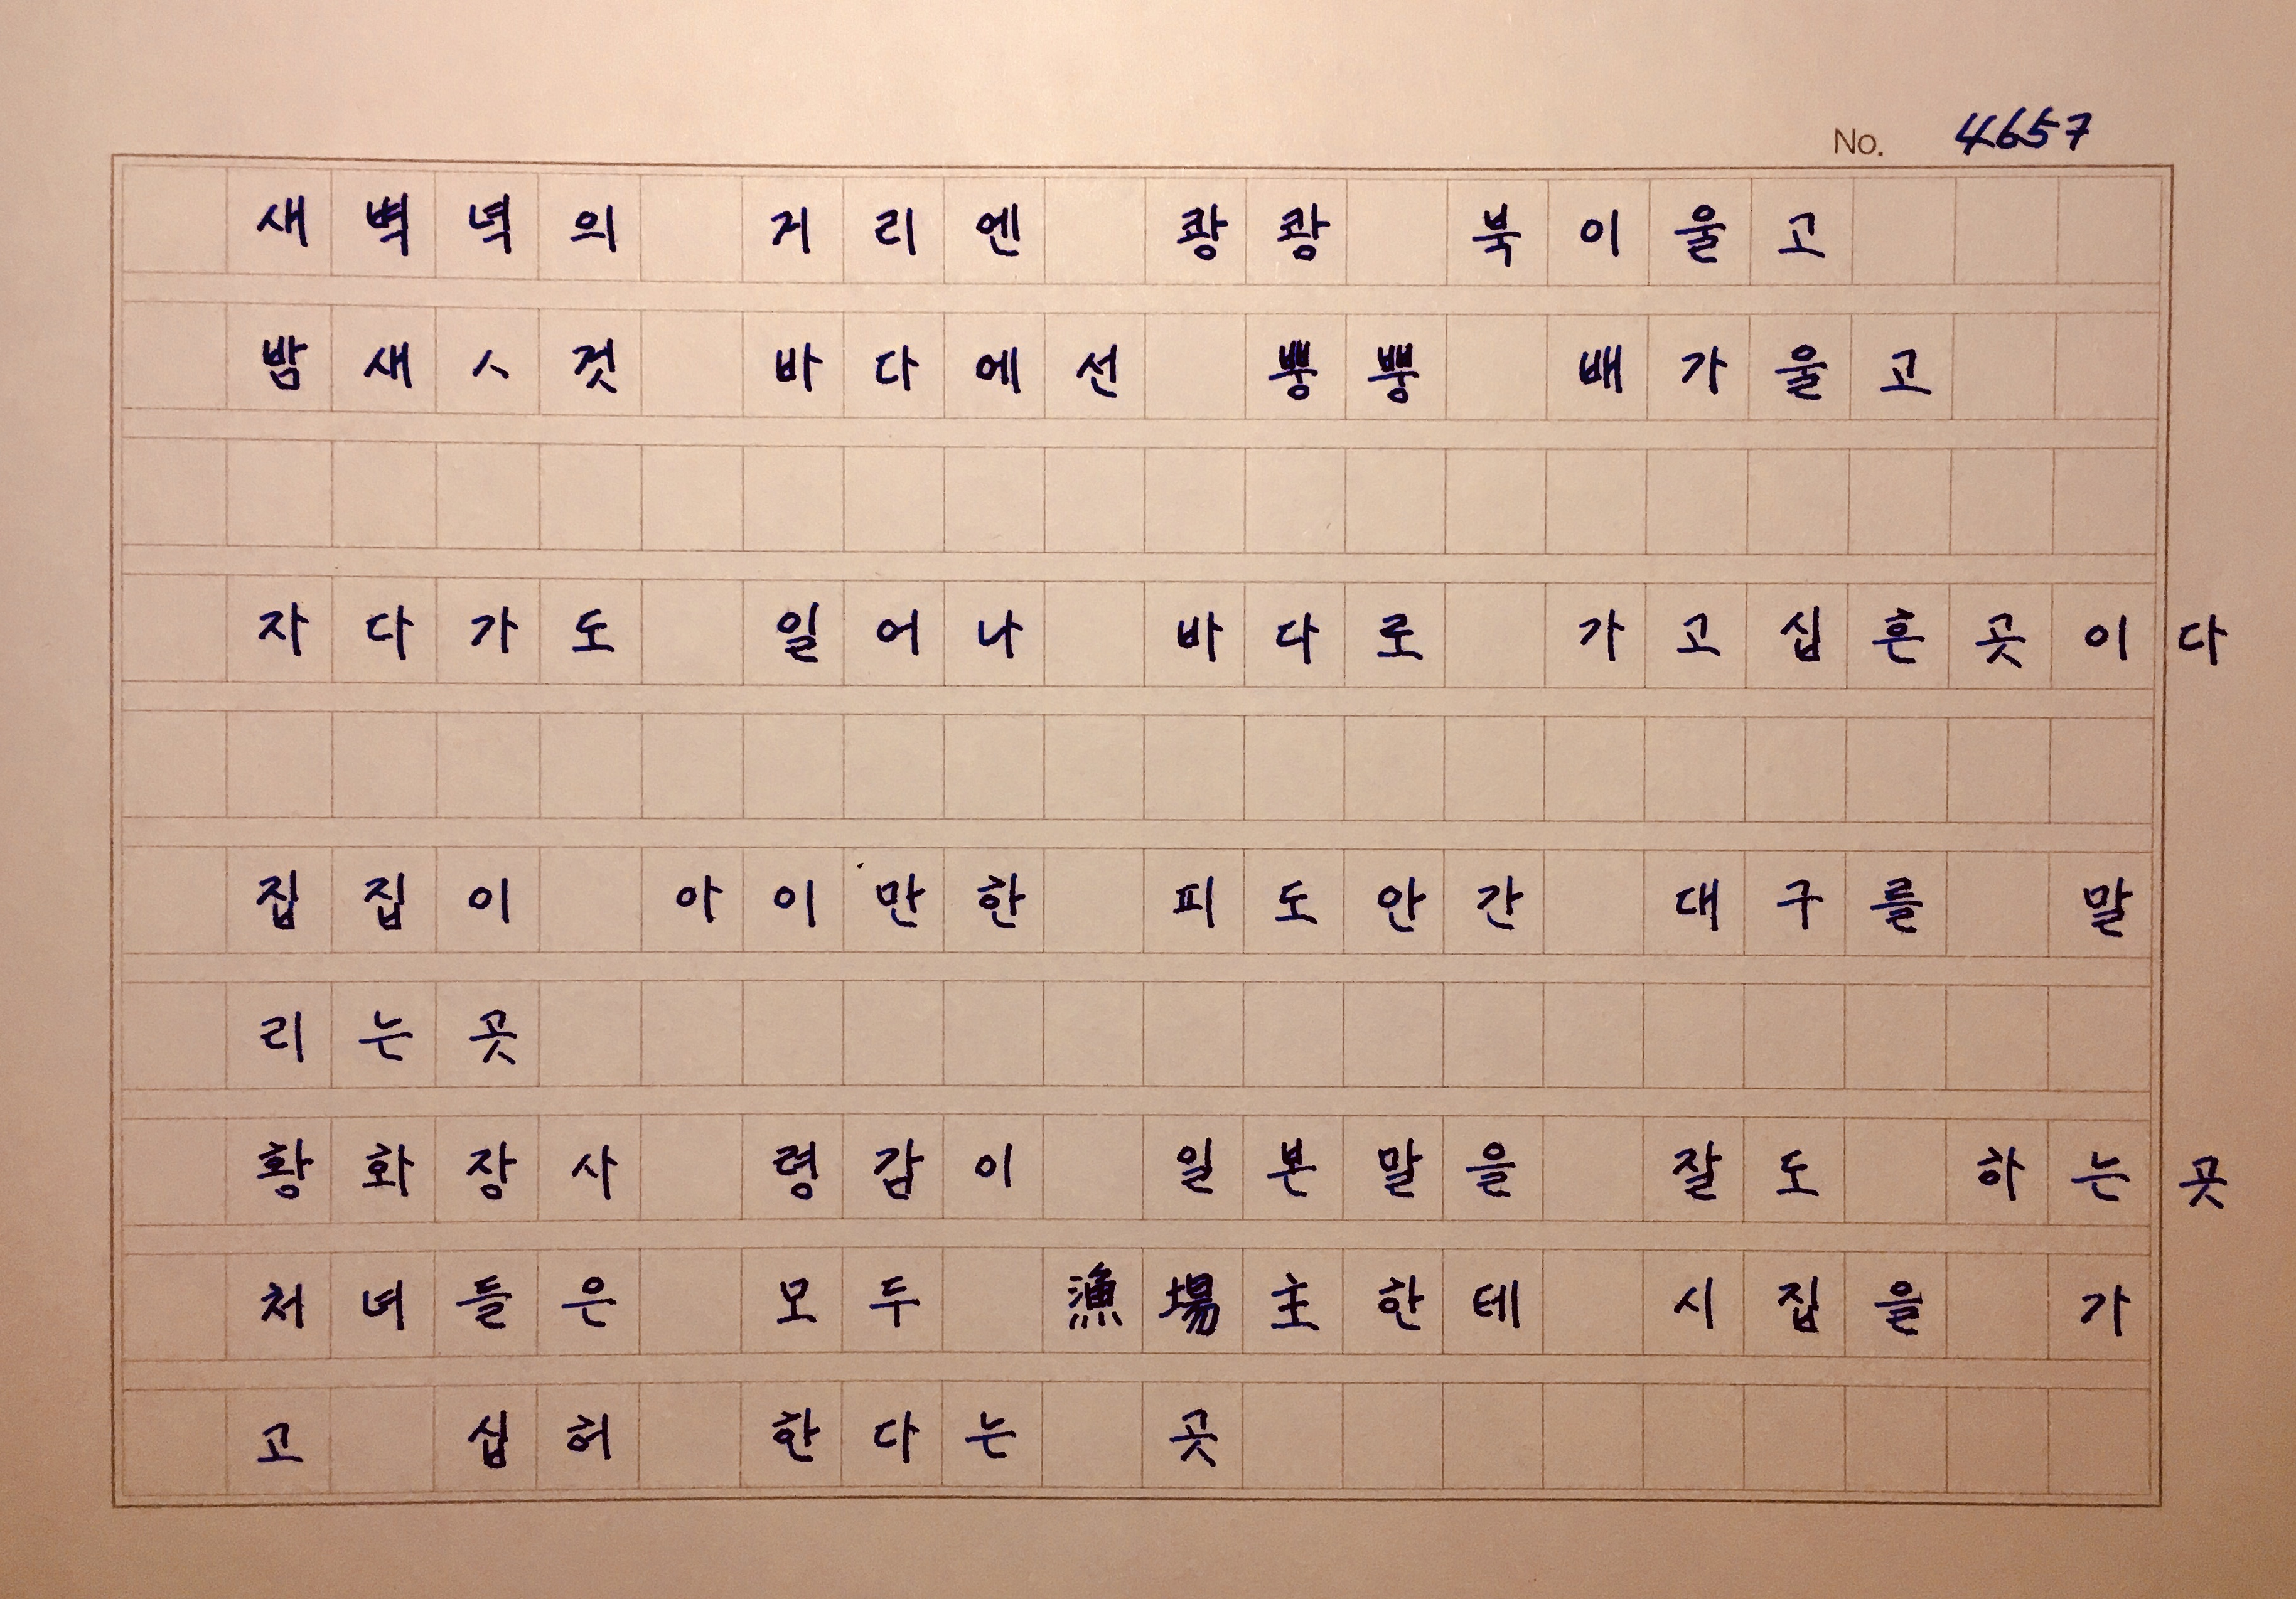 No. 4657
새벽녘의 거리엔 쾅쾅 북이울고
밤새ㅅ것 바다에선 뿡뿡 배가울고
자다가도 일어나 바다로 가고십흔곳이다
집집이 아이만한 피도안간 대구를 말
리는곳
황화장사 령감이 일본말을 잘도 하는곳
처녀들은 모두 漁場主한테 시집을 가
고 십허 한다는 곳